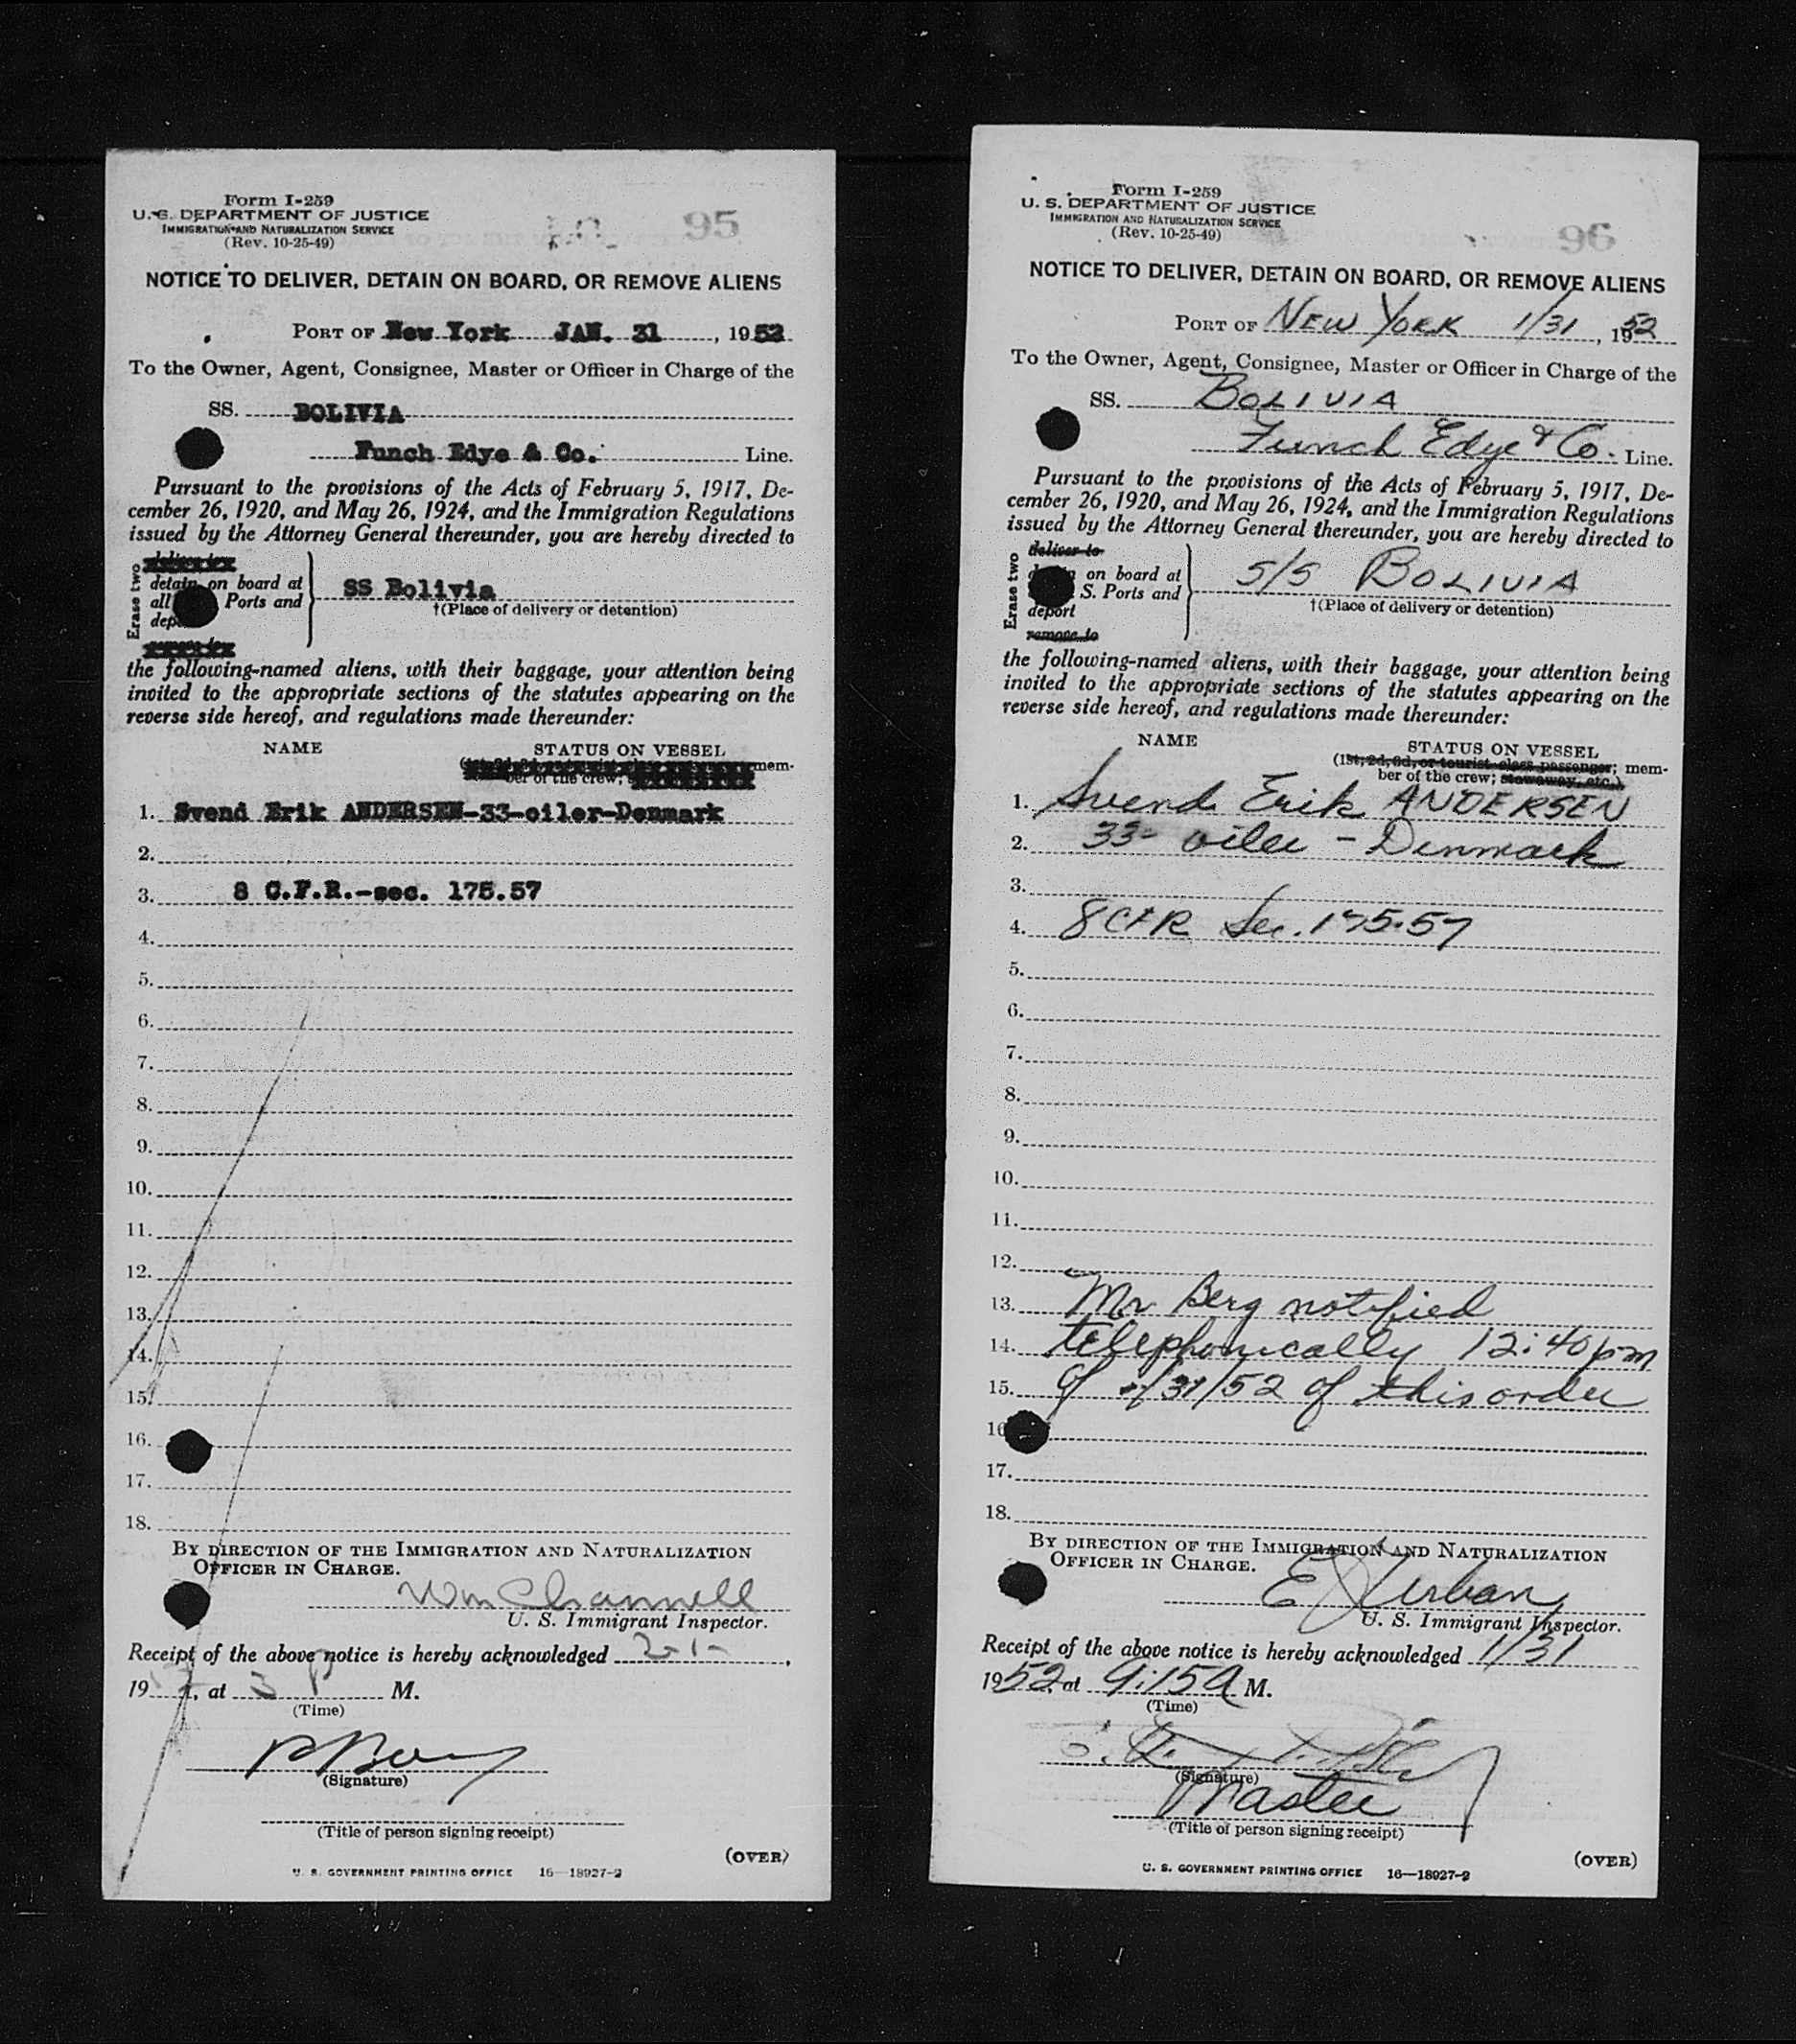 Form I-259
U. S. DEPARTMENT OF JUSTICE
IMMIGRATION AND NATURALIZATION SERVICE
(Rev. 10-25-49)
95
NOTICE TO DELIVER, DETAIN ON BOARD, OR REMOVE ALIENS
PORT OF New York JAN. 31, 1952
To the Owner, Agent, Consignee, Master or Officer in Charge of the
SS. BOLIVIA
Funch Edye & Co. Line.
Pursuant to the provisions of the Acts of February 5, 1917, De-
cember 26, 1920, and May 26, 1924, and the Immigration Regulations
issued by the Attorney General thereunder, you are hereby directed to
Erase two
detain on board at
all Ports and
SS Bolivia
†(Place of delivery or detention)
the following-named aliens, with their baggage, your attention being
invited to the appropriate sections of the statutes appearing on the
reverse side hereof, and regulations made thereunder:
NAME STATUS ON VESSEL
mem-
ber of the crew;
1. Svend Erik ANDERSEN-33-oiler-Denmark
2.
3. 8 C.F.R.-sec. 175.57
4.
5.
6.
7.
8.
9.
10.
11.
12.
13.
14.
15.
16.
17.
18.
BY DIRECTION OF THE IMMIGRATION AND NATURALIZATION
OFFICER IN CHARGE.
Wm Channell
U. S. Immigrant Inspector.
Receipt of the above notice is hereby acknowledged 2-1-,
19, at 3 P M.
(Time)
(Signature)
(Title of person signing receipt)
(OVER)
U. S. GOVERNMENT PRINTING OFFICE 16—18927-2
Form I-259
U. S. DEPARTMENT OF JUSTICE
IMMIGRATION AND NATURALIZATION SERVICE
(Rev. 10-25-49)
96
NOTICE TO DELIVER, DETAIN ON BOARD, OR REMOVE ALIENS
PORT OF NEW YORK 1/31, 1952
To the Owner, Agent, Consignee, Master or Officer in Charge of the
SS. BOLIVIA
Funch Edye & Co. Line.
Pursuant to the provisions of the Acts of February 5, 1917, De-
cember 26, 1920, and May 26, 1924, and the Immigration Regulations
issued by the Attorney General thereunder, you are hereby directed to
Erase two
deliver to
on board at
S. Ports and
deport
remove to
S/S BOLIVIA
†(Place of delivery or detention)
the following-named aliens, with their baggage, your attention being
invited to the appropriate sections of the statutes appearing on the
reverse side hereof, and regulations made thereunder:
NAME STATUS ON VESSEL
(1st, 2d, 3d, or tourist class passenger; mem-
ber of the crew; stowaway, etc.)
1. Svend Erik ANDERSEN
2. 33- oiler - Denmark
3.
4. 8 CFR Sec. 175.57
5.
6.
7.
8.
9.
10.
11.
12.
13. Mr Berg notified
14. telephonically 12:40 pm
15. of 1/31/52 of this order
16
17.
18.
BY DIRECTION OF THE IMMIGRATION AND NATURALIZATION
OFFICER IN CHARGE.
E J Urban
U. S. Immigrant Inspector.
Receipt of the above notice is hereby acknowledged 1/31
1952 at 9:15 A M.
(Time)
(Signature)
Master
(Title of person signing receipt)
(OVER)
U. S. GOVERNMENT PRINTING OFFICE 16—18927-2